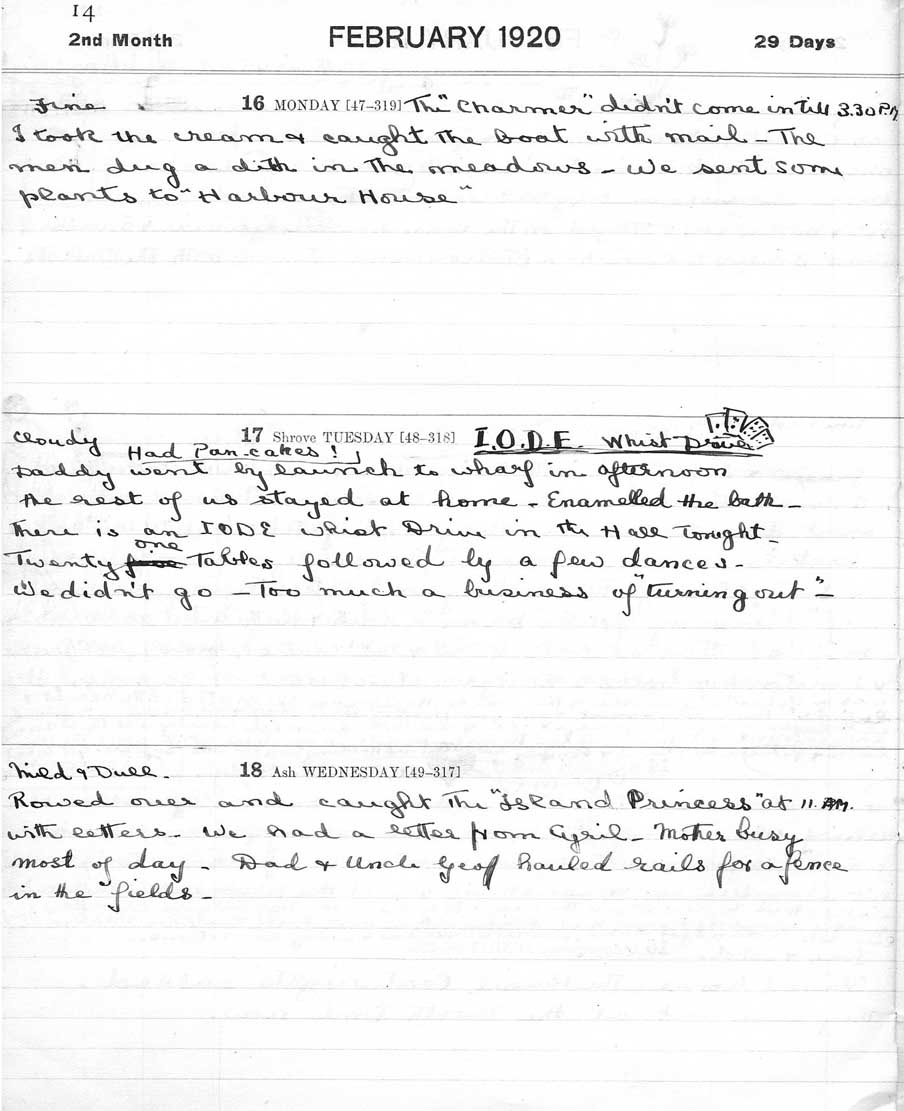 14
2nd Month FEBRUARY 1920 29 Days
Fine 16 MONDAY [47-319] The "Charmer" didn't come in till 3.30 P.M
I took the cream & caught the boat with mail - The
men dug a dith in the meadows - We sent some
plants to "Harbour House"
Cloudy 17 Shrove TUESDAY [48-318] I.O.D.E. Whist Drive
Had Pan-cakes!
Daddy went by launch to wharf in afternoon
the rest of us stayed at home - Enamelled the bath -
There is an IODE whist Drive in the Hall Tonight -
one
Twenty five Tables followed by a few dances -
We didn't go - Too much a business of "turning out" -
Mild & Dull. 18 Ash WEDNESDAY [49-317]
Rowed over and caught The "Island Princess" at 11. AM.
with letters - We had a letter from Cyril - Mother busy
most of day - Dad & Uncle Geof hauled rails for a fence
in the fields -